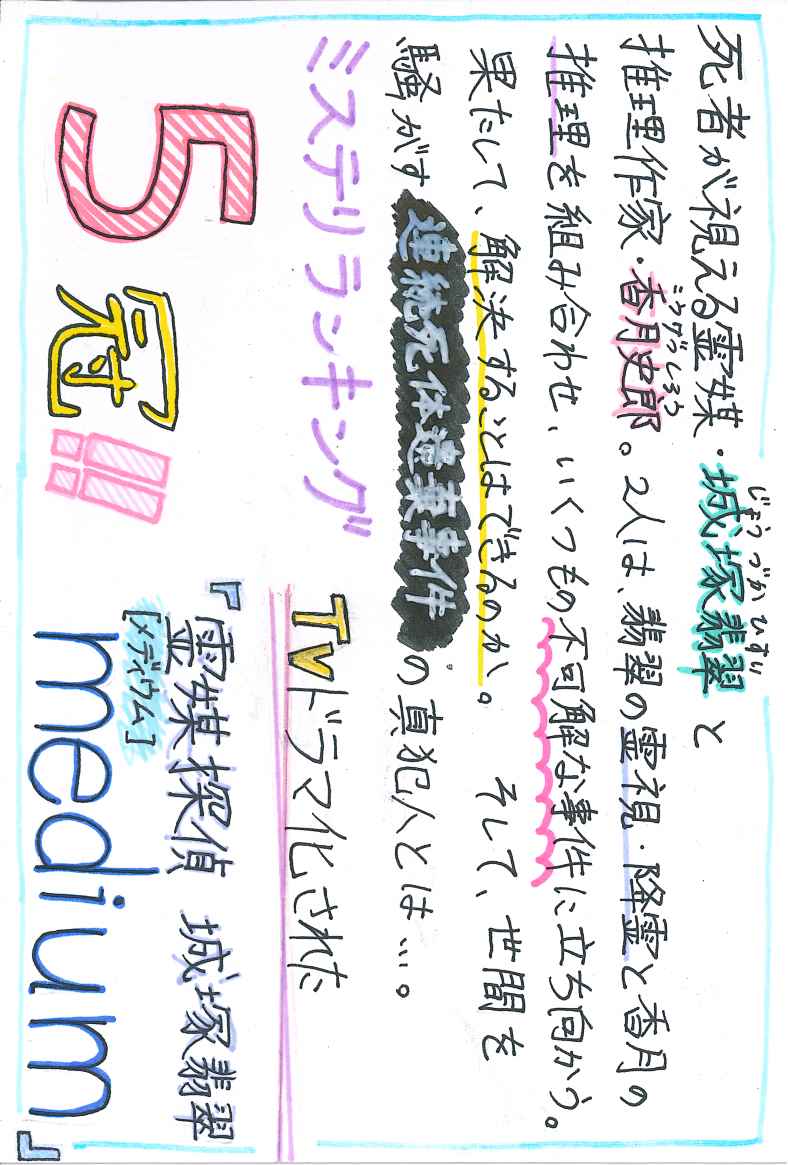 死者が視える霊媒・城塚翡翠と
じょうづかひすい
推理作家・香月史郎。2人は、翡翠の霊視・降霊と香月の
こうげつしろう
推理を組み合わせ、いくつもの不可解な事件に立ち向かう。
果たして、解決することはできるのか。 そして、世間を
騒がす連続死体遺棄事件の真犯人とは…。
ミステリランキング
5冠!!
TVドラマ化された
『霊媒探偵 城塚翡翠
[メディウム]
medium』